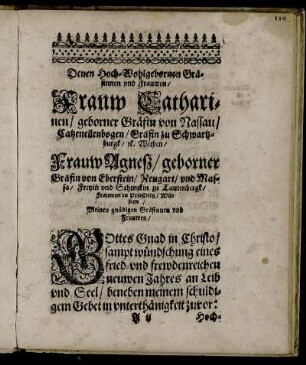 Denen Hoch-Wohlgebornen Grä-
finnen und Frauwen/
Frauw Cathari-
nen/ geborner Gräfin von Nassau/
Catzenellenbogen/ Gräfin zu Schwartz-
burgk/ ꝛc. Witben/
Frauw Agneß/ geborner
Gräfin von Eberstein/ Neugart/ und Mas-
sa/ Freyin und Schenckin zu Tautenbergk/
Frauwen zu
Meinen gnädigen Gräfinnen vnd
Frauwen/
GOttes Gnad in Christo/
sampt wündschung eines
fried-vnd frewdenreichen
neuwen Jahres an Leib
vnd Seel/ beneben meinem schuldi-
gem Gebet in vnterthänigkeit zuvor:
A ij Hoch-